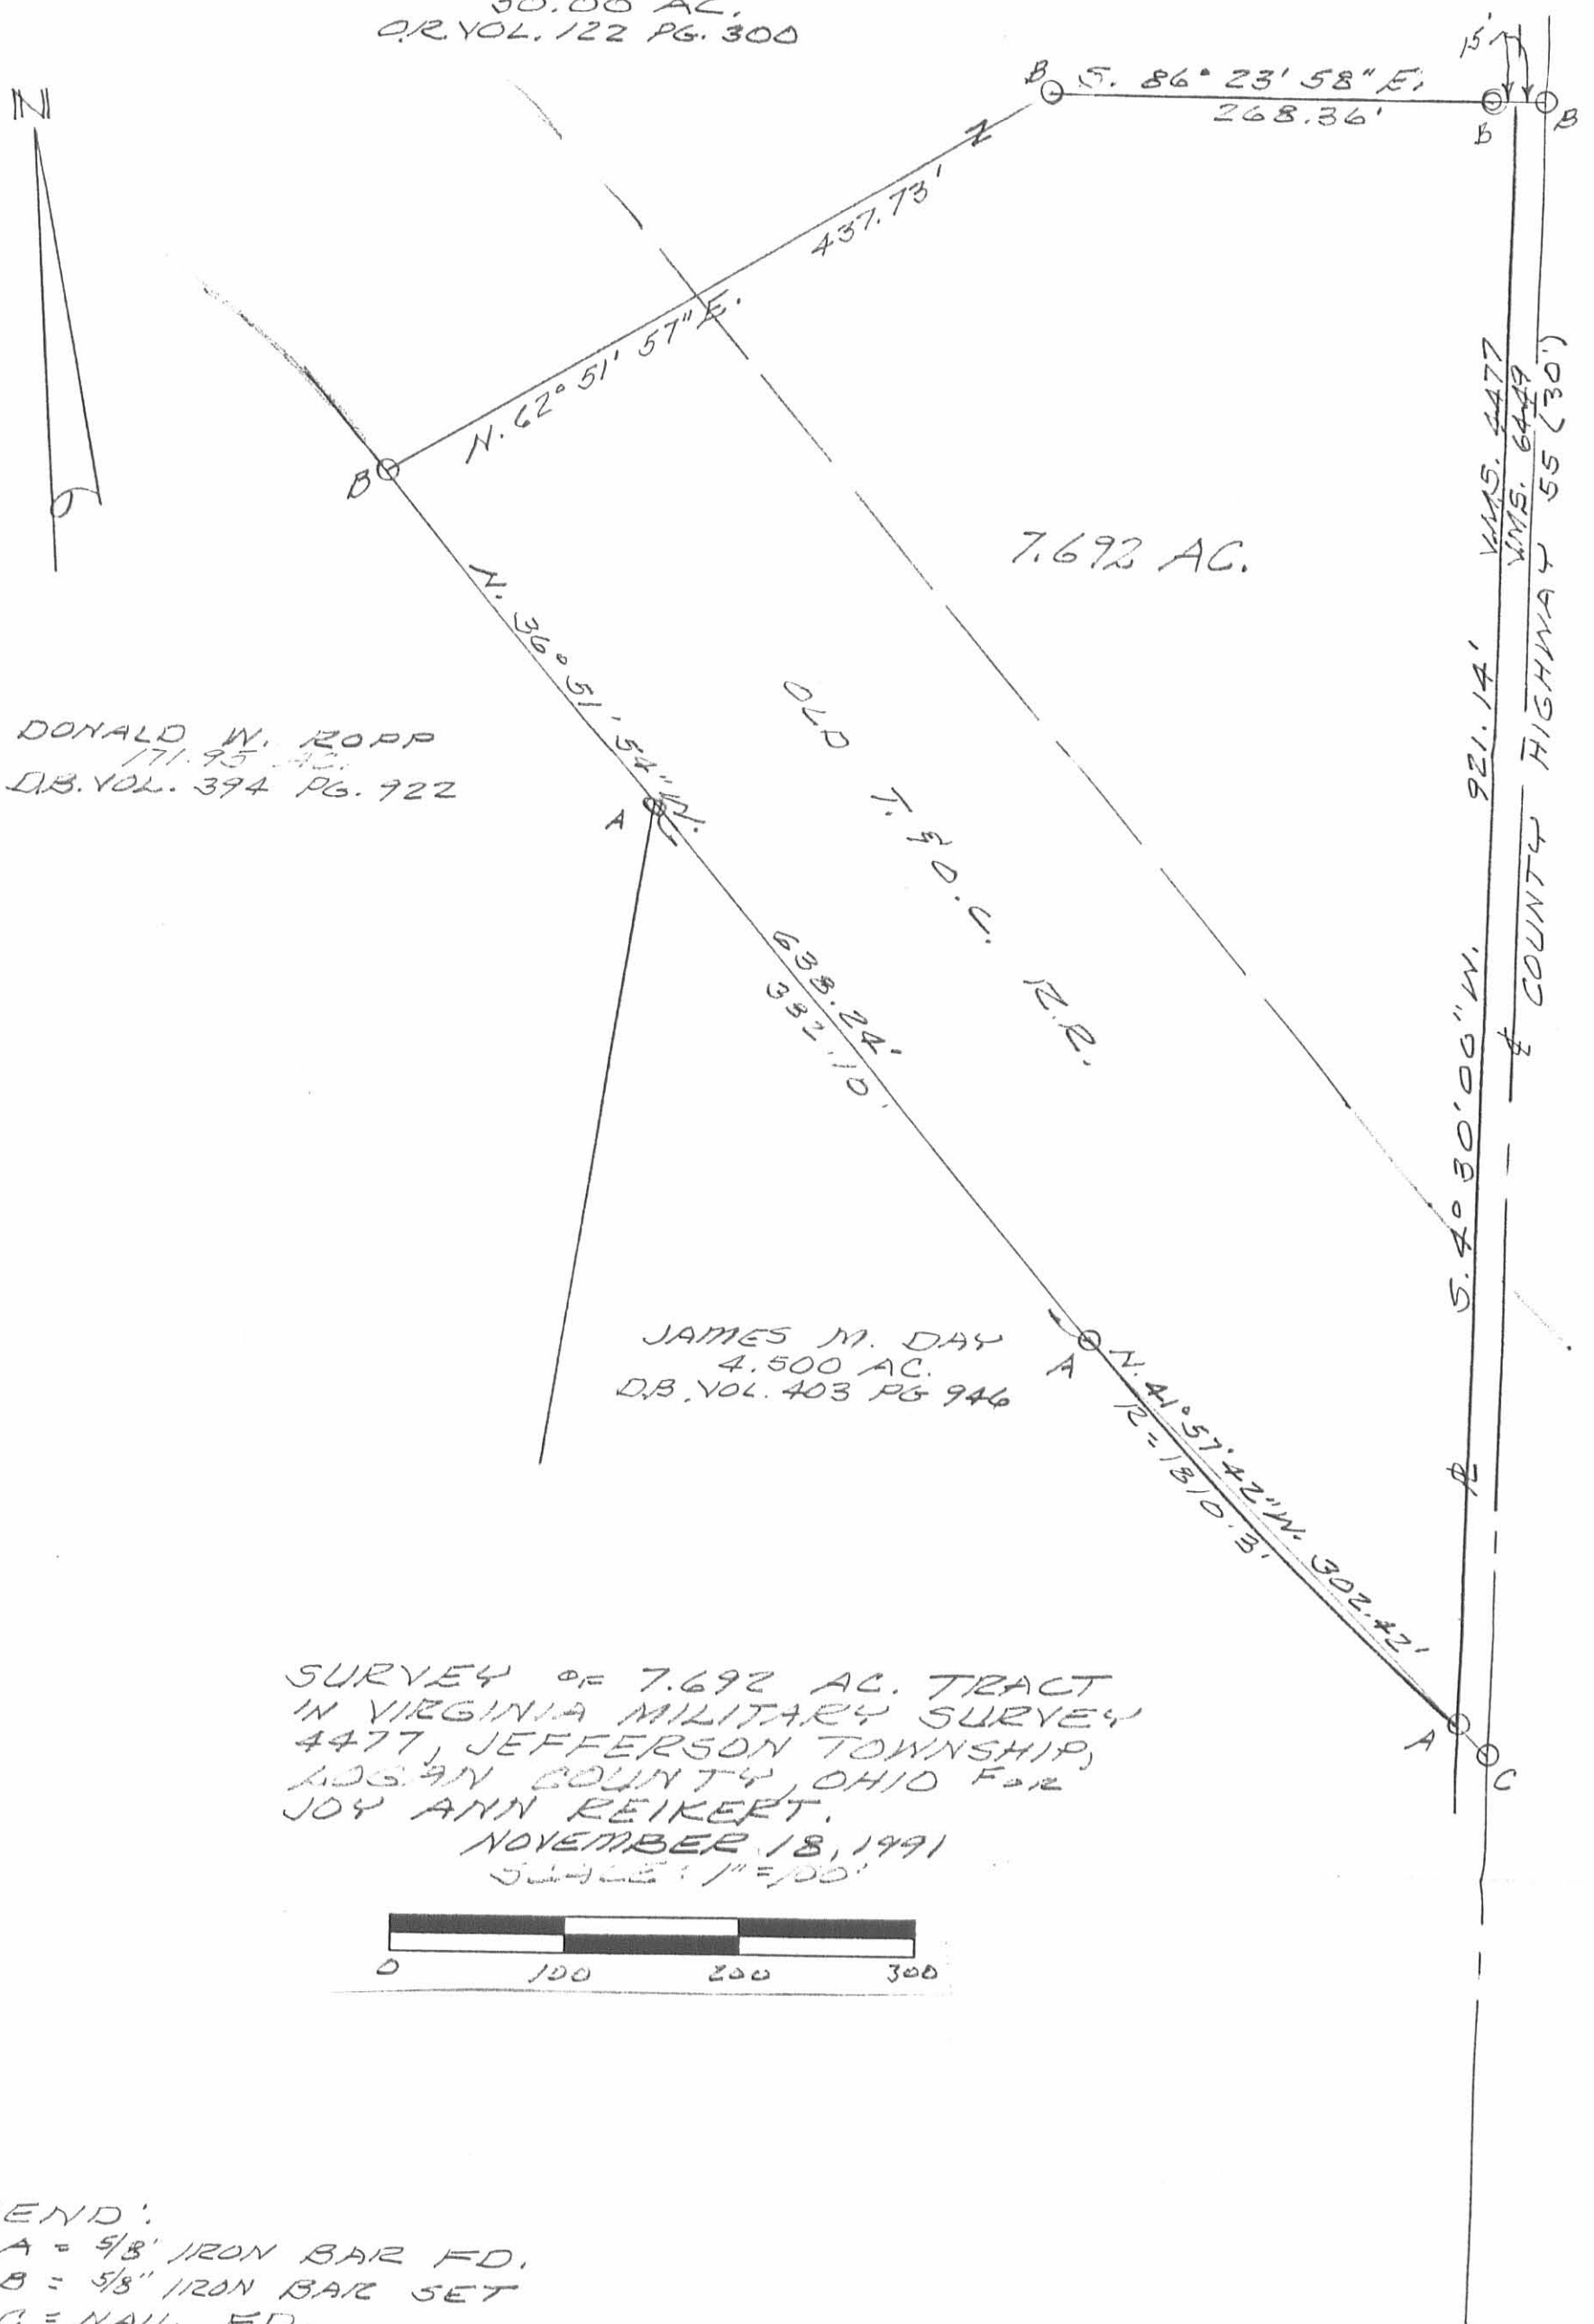 30.00 AC.
O.R. VOL. 122 PG. 300
N
15'
B
S. 86° 23' 58" E.
268.36'
B
B
437.73'
N. 62° 51' 57" E.
B
7.692 AC.
VMS. 4477
VMS. 6449
COUNTY HIGHWAY 55 (30')
N. 36° 51' 54" W.
OLD T. & O.C. R.R.
921.14'
DONALD W. ROPP
171.95 AC.
D.B. VOL. 394 PG. 922
A
638.24'
332.10'
S. 4° 30' 00" W.
JAMES M. DAY
4.500 AC.
D.B. VOL. 403 PG 946
A
N. 41° 57' 42" W. 302.42'
R = 1810.3'
A
C
SURVEY OF 7.692 AC. TRACT
IN VIRGINIA MILITARY SURVEY
4477, JEFFERSON TOWNSHIP,
LOGAN COUNTY, OHIO FOR
JOY ANN REIKERT.
NOVEMBER 18, 1991
SCALE: 1" = 100'
0 100 200 300
END:
A = 5/8' IRON BAR FD.
B = 5/8" IRON BAR SET
C = NAIL FD.